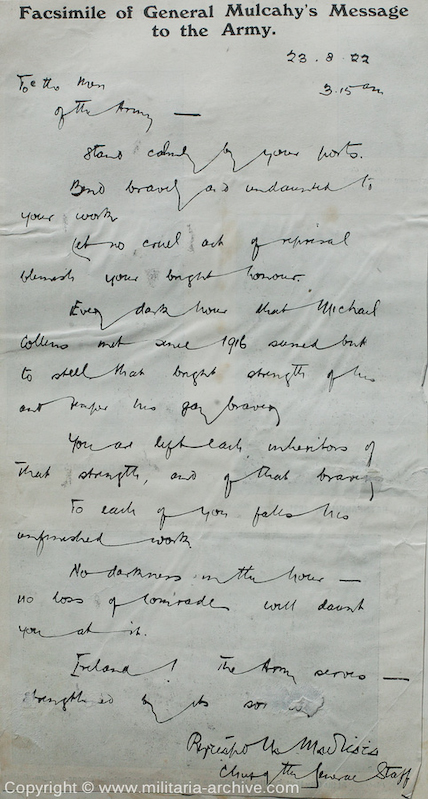 Facsimile of General Mulcahy's Message
to the Army.
23.8.22
3.15 am
To the Men
of the Army —
Stand calmly by your posts.
Bend bravely and undaunted to
your work
Let no cruel act of reprisal
blemish your bright honour.
Every dark hour that Michael
Collins met since 1916 seemed but
to steel that bright strength of his
and temper his gay bravery
You are left each inheritors of
that strength, and of that bravery
To each of you falls his
unfinished work.
No darkness in the hour —
no loss of comrades will daunt
you at it.
Ireland! The Army serves —
strengthened by its sorrow
Chief of the General Staff
Copyright © www.militaria-archive.com